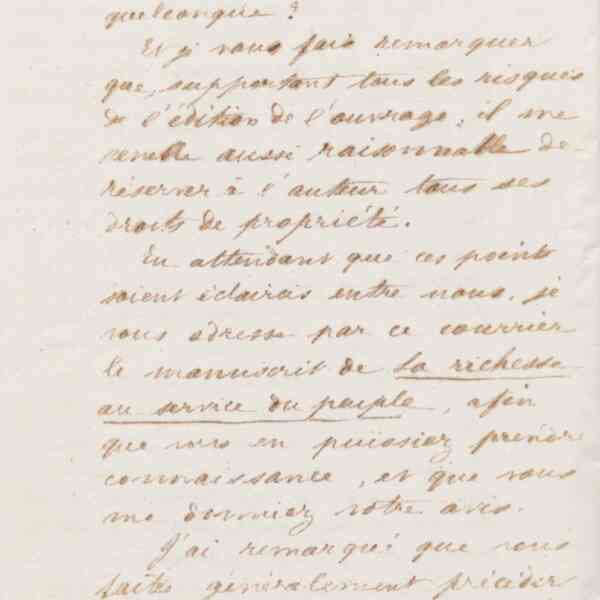 quelconque ?
Et je vous fais remarquer
que, supportant tous les risques
de l'édition de l'ouvrage, il me
semble aussi raisonnable de
réserver à l'auteur tous ses
droits de propriété.
En attendant que ces points
soient éclaircis entre nous, je
vous adresse par ce courrier
le manuscrit de La richesse
au service du peuple, afin
que vous en puissiez prendre
connaissance, et que vous
me donniez votre avis.
J'ai remarqué que vous
faites généralement précéder